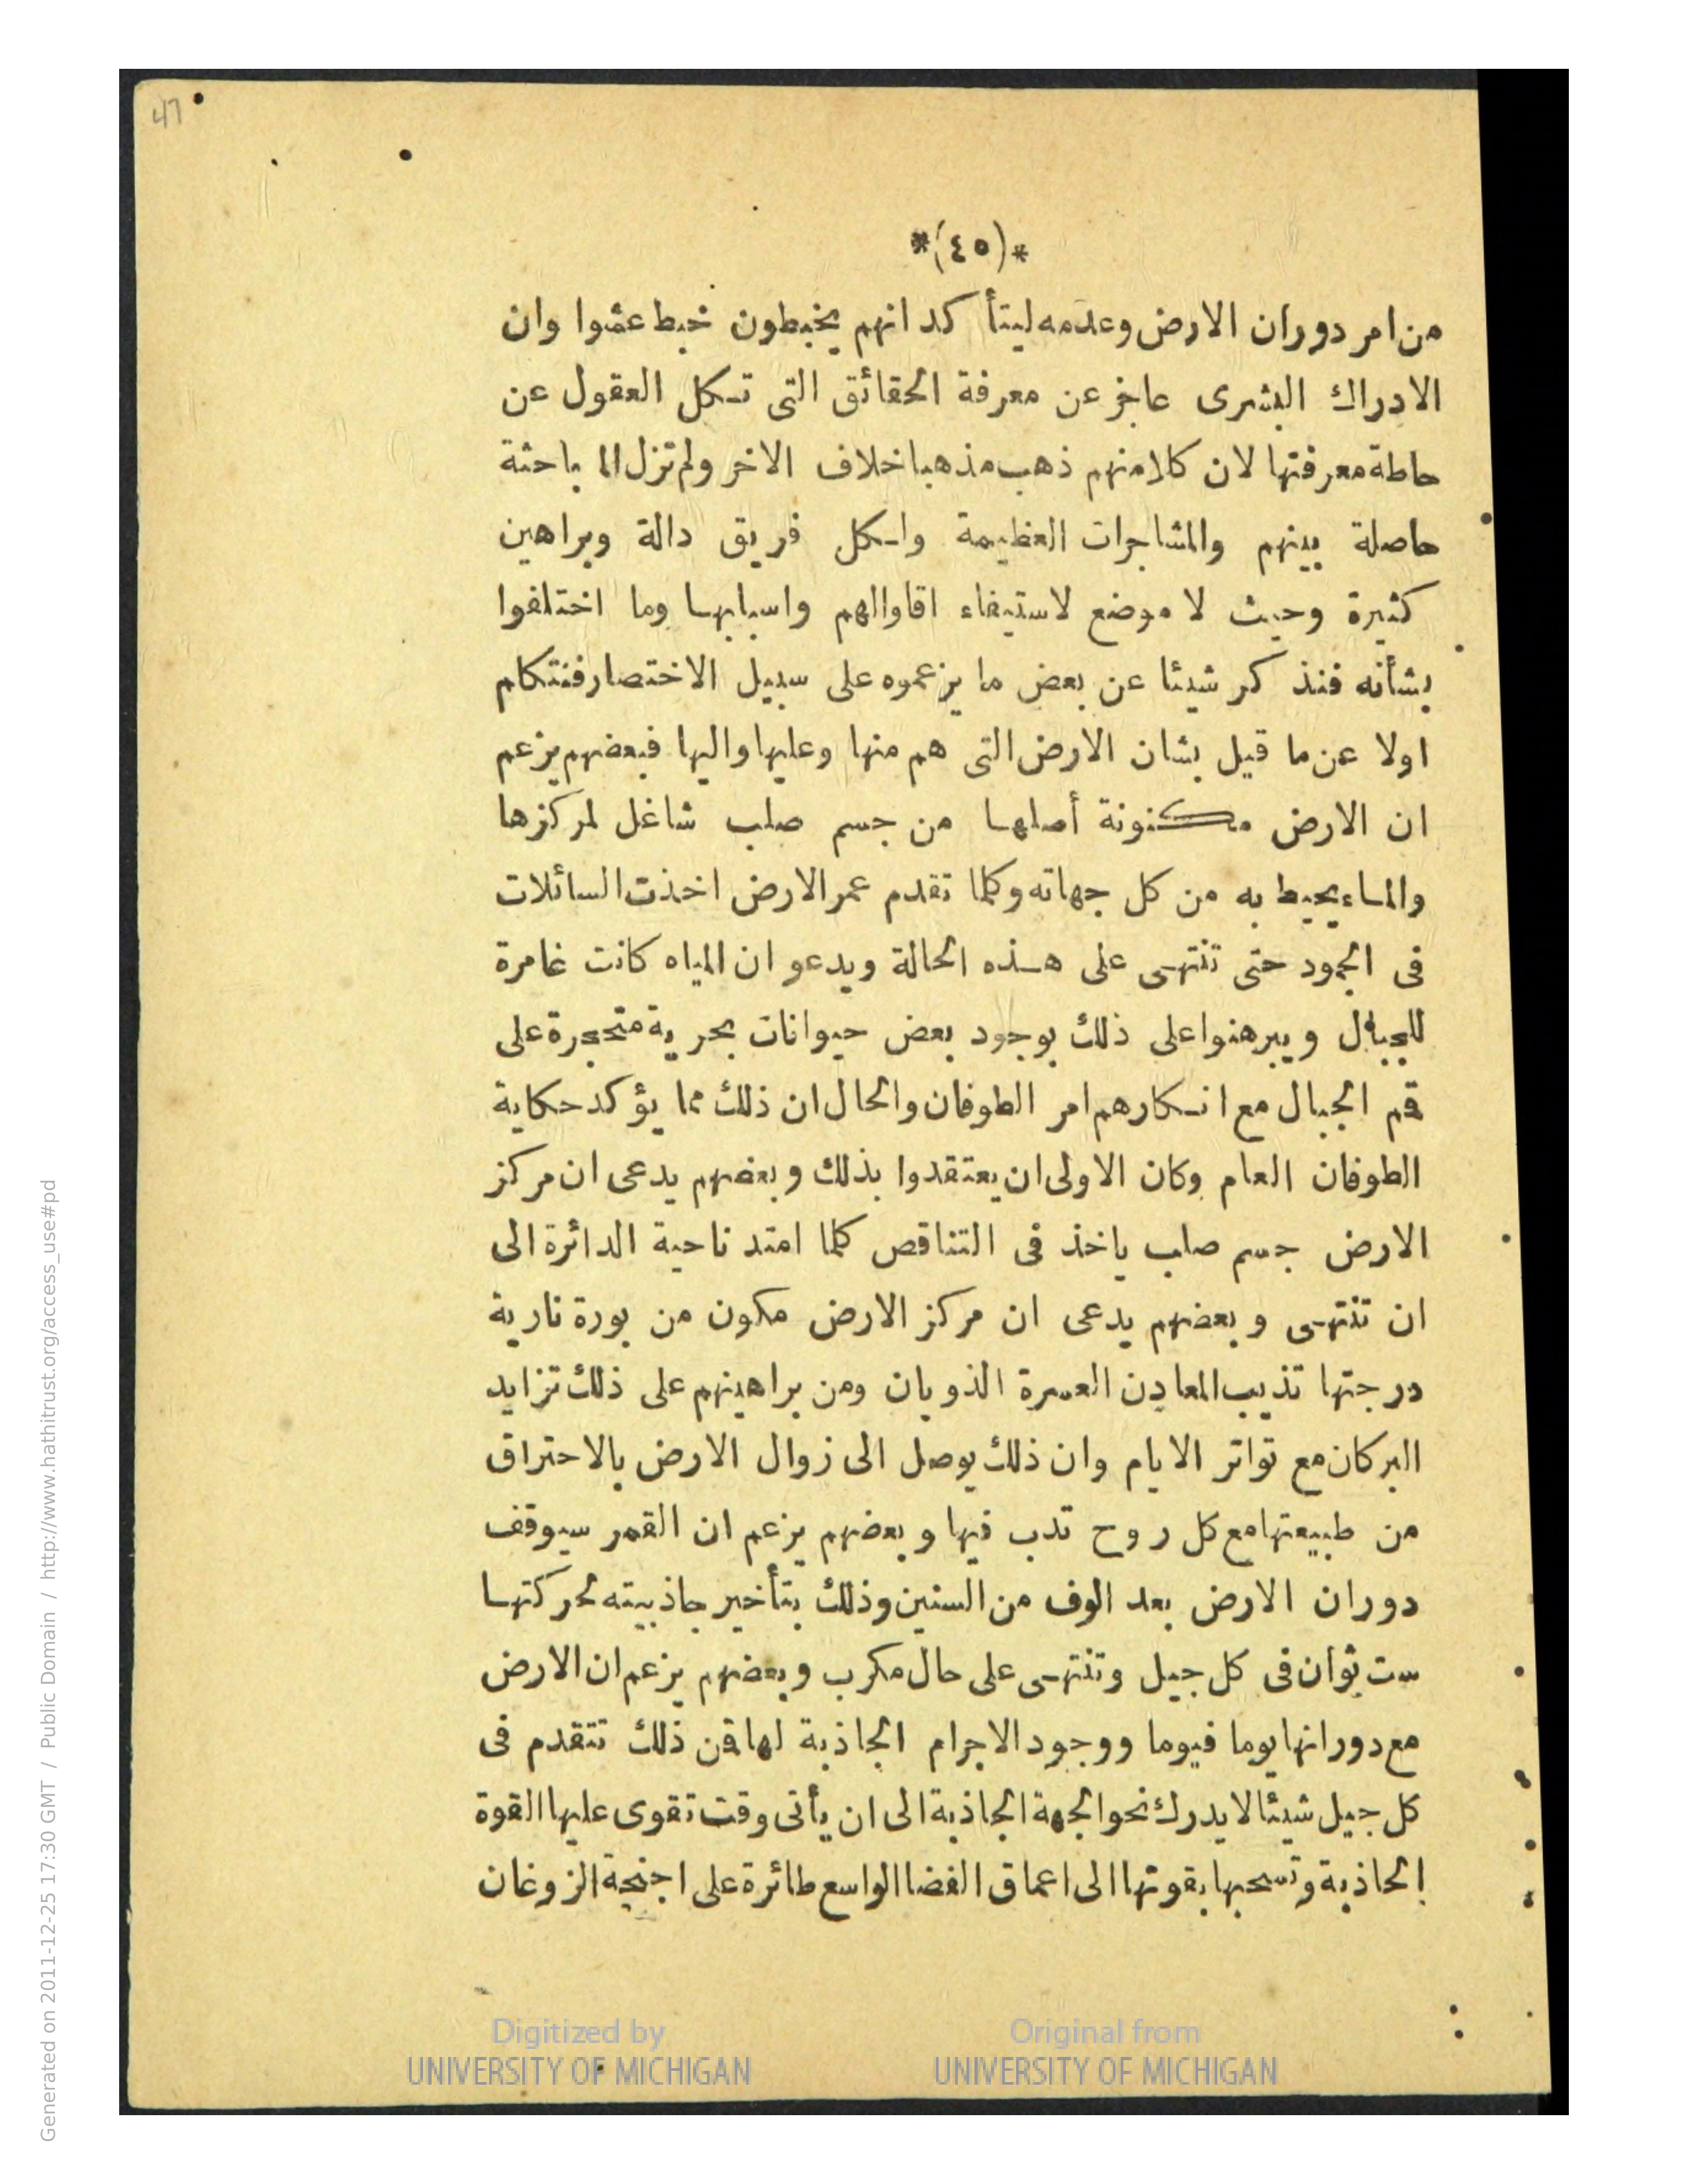 47
*(٤٥)*
من امر دوران الارض وعدمه ليتأكد انهم يخبطون خبط عشوا وان
الادراك البشرى عاجز عن معرفة الحقائق التى تكل العقول عن
حاطة معرفتها لان كلامنهم ذهب مذهبا خلاف الاخر ولم تزل الما باحثة
حاصلة بينهم والمشاجرات العظيمة ولكل فريق دالة وبراهين
كثيرة وحيث لا موضع لاستيفاء اقاوالهم واسبابها وما اختلفوا
بشأنه فنذكر شيئا عن بعض ما يزعموه على سبيل الاختصار فنتكلم
اولا عن ما قيل بشان الارض التى هم منها وعليها واليها فبعضهم يزعم
ان الارض مكنونة أصلها من جسم صلب شاغل لمركزها
والماء يحيط به من كل جهاته وكلما تقدم عمر الارض اخذت السائلات
فى الجمود حتى تنتهى على هذه الحالة ويدعو ان المياه كانت غامرة
للجبال ويبرهنوا على ذلك بوجود بعض حيوانات بحرية متحجرة على
قم الجبال مع انكارهم امر الطوفان والحال ان ذلك مما يؤكد حكاية
الطوفان العام وكان الاولى ان يعتقدوا بذلك وبعضهم يدعى ان مركز
الارض جسم صلب ياخذ فى التناقص كلما امتد ناحية الدائرة الى
ان تنتهى وبعضهم يدعى ان مركز الارض مكون من بورة نارية
درجتها تذيب المعادن العسرة الذوبان ومن براهينهم على ذلك تزايد
البركان مع تواتر الايام وان ذلك يوصل الى زوال الارض بالاحتراق
من طبيعتها مع كل روح تدب فيها وبعضهم يزعم ان القمر سيوقف
دوران الارض بعد الوف من السنين وذلك بتأخير جاذبيته لحركتها
ست ثوان فى كل جيل وتنتهى على حال مكرب وبعضهم يزعم ان الارض
مع دورانها يوما فيوما ووجود الاجرام الجاذبة لها فن ذلك تتقدم فى
كل جيل شيئا لا يدرك نحو الجهة الجاذبة الى ان يأتى وقت تقوى عليها القوة
الجاذبة وتسحبها بقوتها الى اعماق الفضا الواسع طائرة على اجنحة الزوغان
Digitized by
UNIVERSITY OF MICHIGAN
Original from
UNIVERSITY OF MICHIGAN
Generated on 2011-12-25 17:30 GMT / Public Domain / http://www.hathitrust.org/access_use#pd